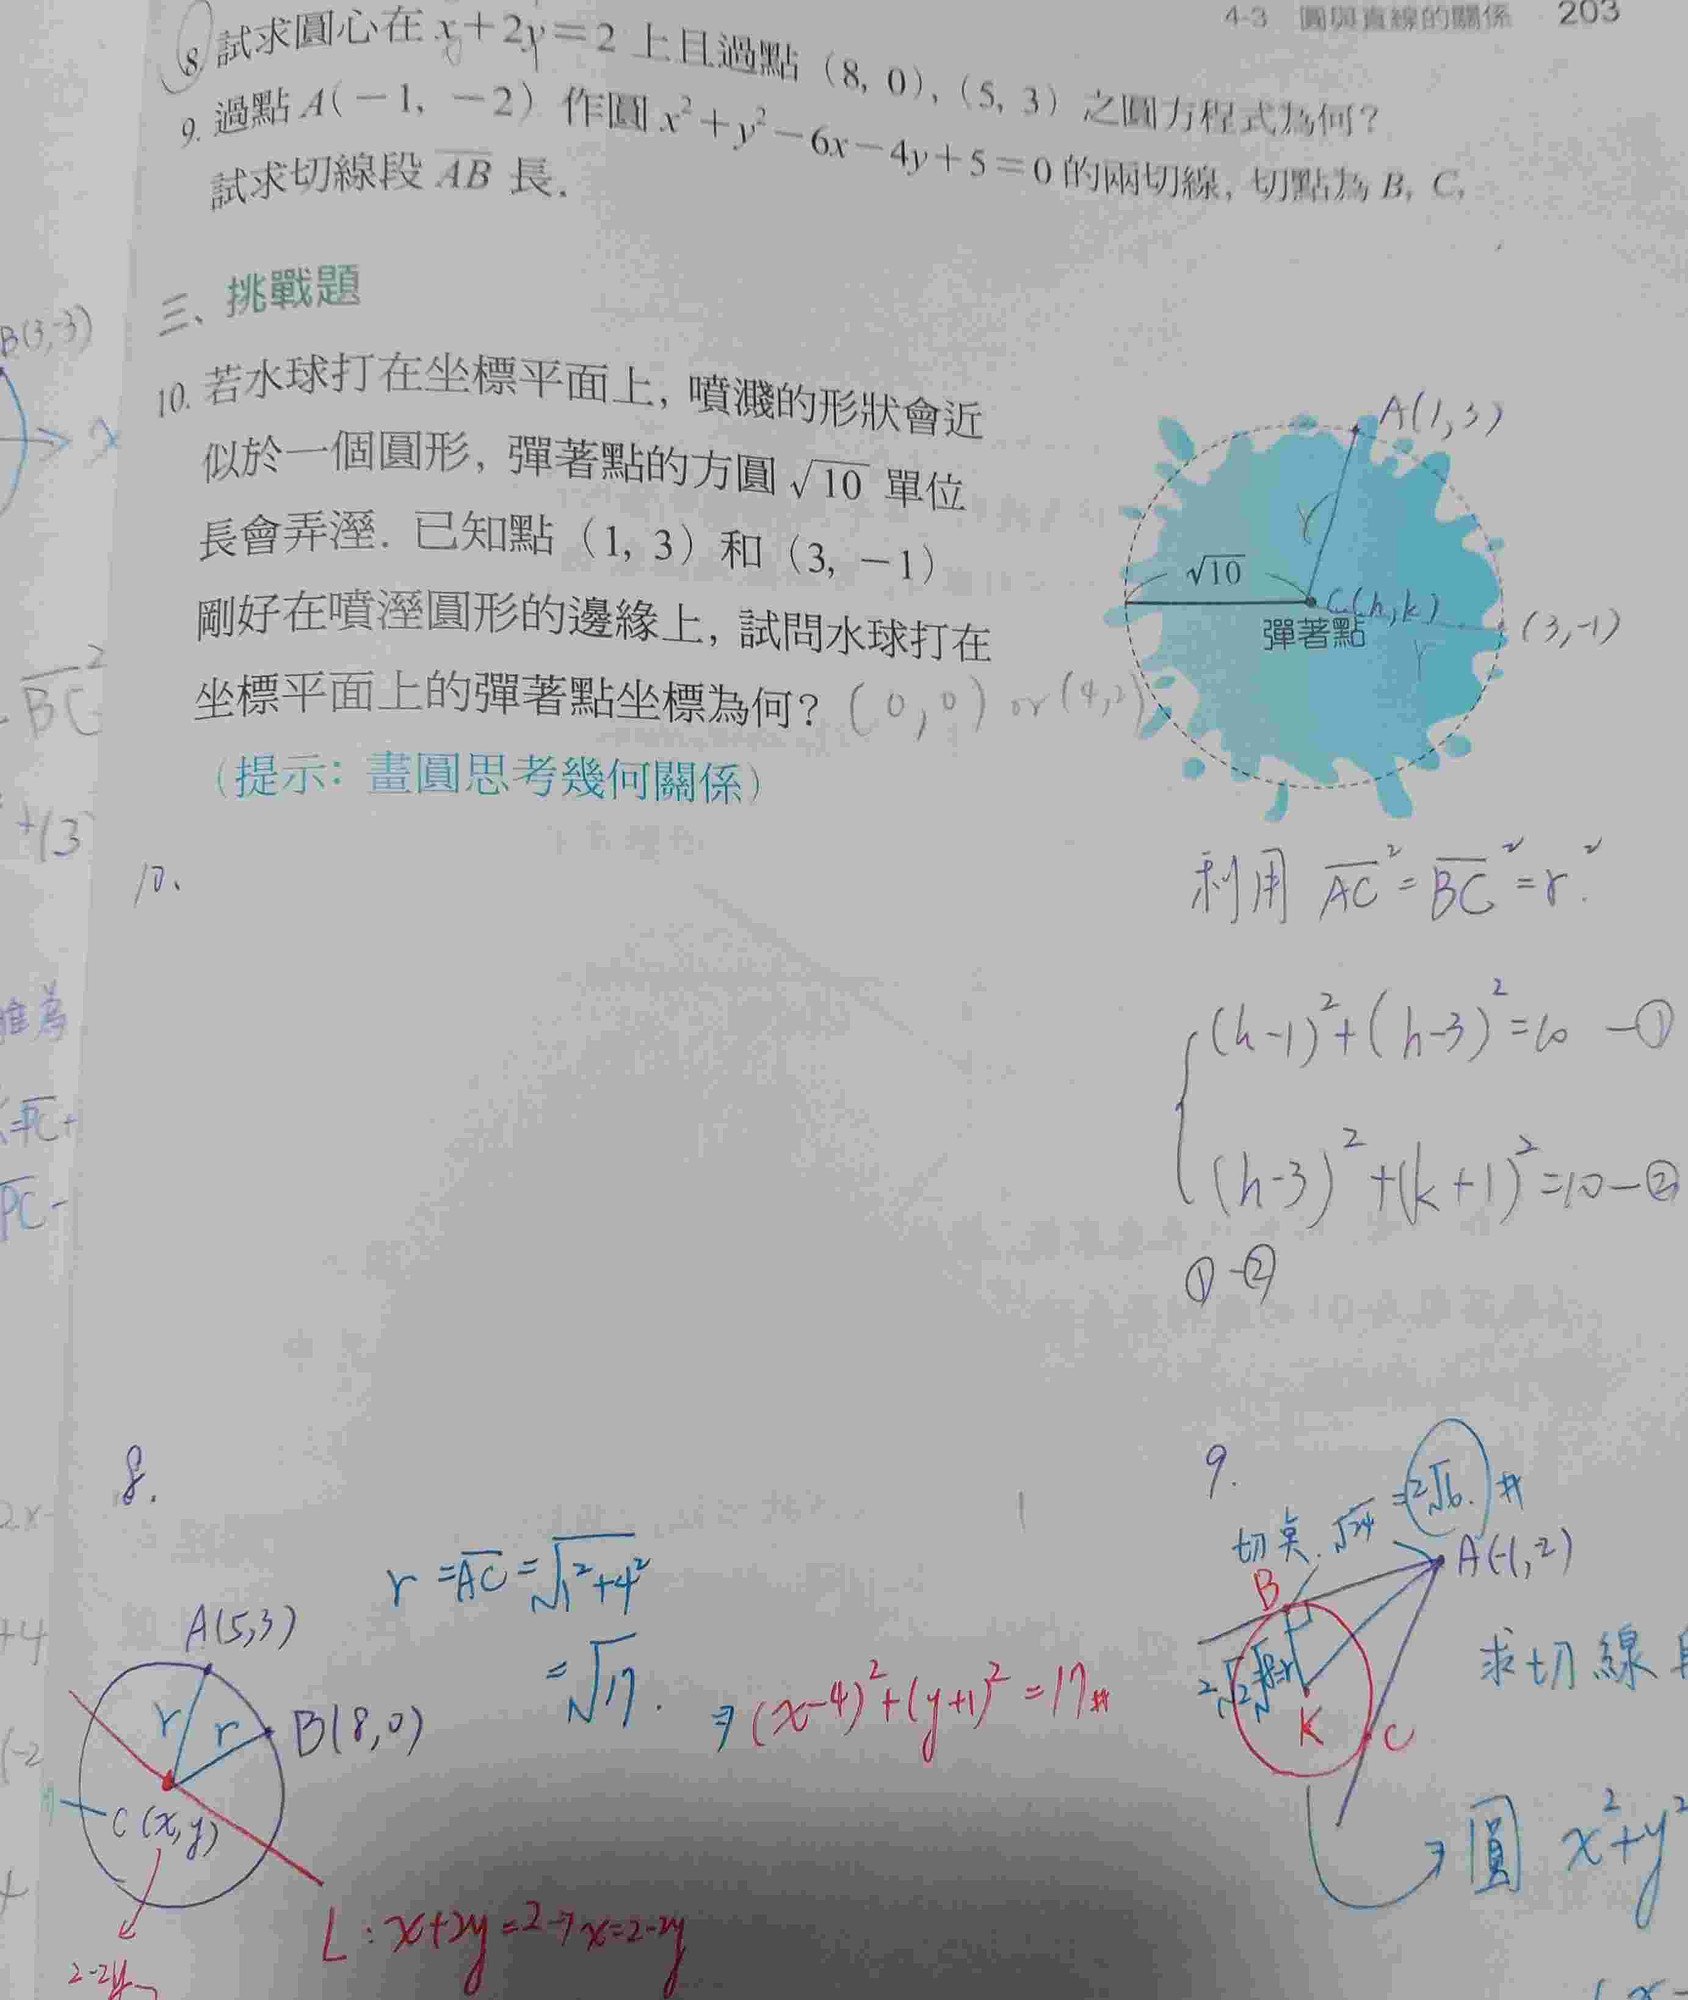 4-3 圓與直線的關係 203
8. 試求圓心在 x+2y=2 上且過點 (8, 0), (5, 3) 之圓方程式為何?
9. 過點 A(-1, -2) 作圓 x²+y²-6x-4y+5=0 的兩切線, 切點為 B, C,
試求切線段 AB 長.
三、挑戰題
B(3,-3)
x
10. 若水球打在坐標平面上, 噴濺的形狀會近
似於一個圓形, 彈著點的方圓 √10 單位
長會弄溼. 已知點 (1, 3) 和 (3, -1)
剛好在噴溼圓形的邊緣上, 試問水球打在
坐標平面上的彈著點坐標為何? (0,0) or (4,2)
(提示: 畫圓思考幾何關係)
A(1,3)
r
√10
C(h,k)
彈著點
r
(3,-1)
BC²
+13
10.
利用 AC²=BC²=r².
(h-1)²+(h-3)²=10 -①
(h-3)²+(k+1)²=10-②
①-②
=PC+
PC-
8.
r=AC=√1²+4²
=√17.
⇒(x-4)²+(y+1)²=17#
A(5,3)
r
r
B(8,0)
C(x,y)
2-2y
L:x+2y=2→x=2-2y
9.
切點.√24=2√6.#
A(-1,2)
B
2√2
K
C
求切線
⇒圓 x²+y²
+4
(-2